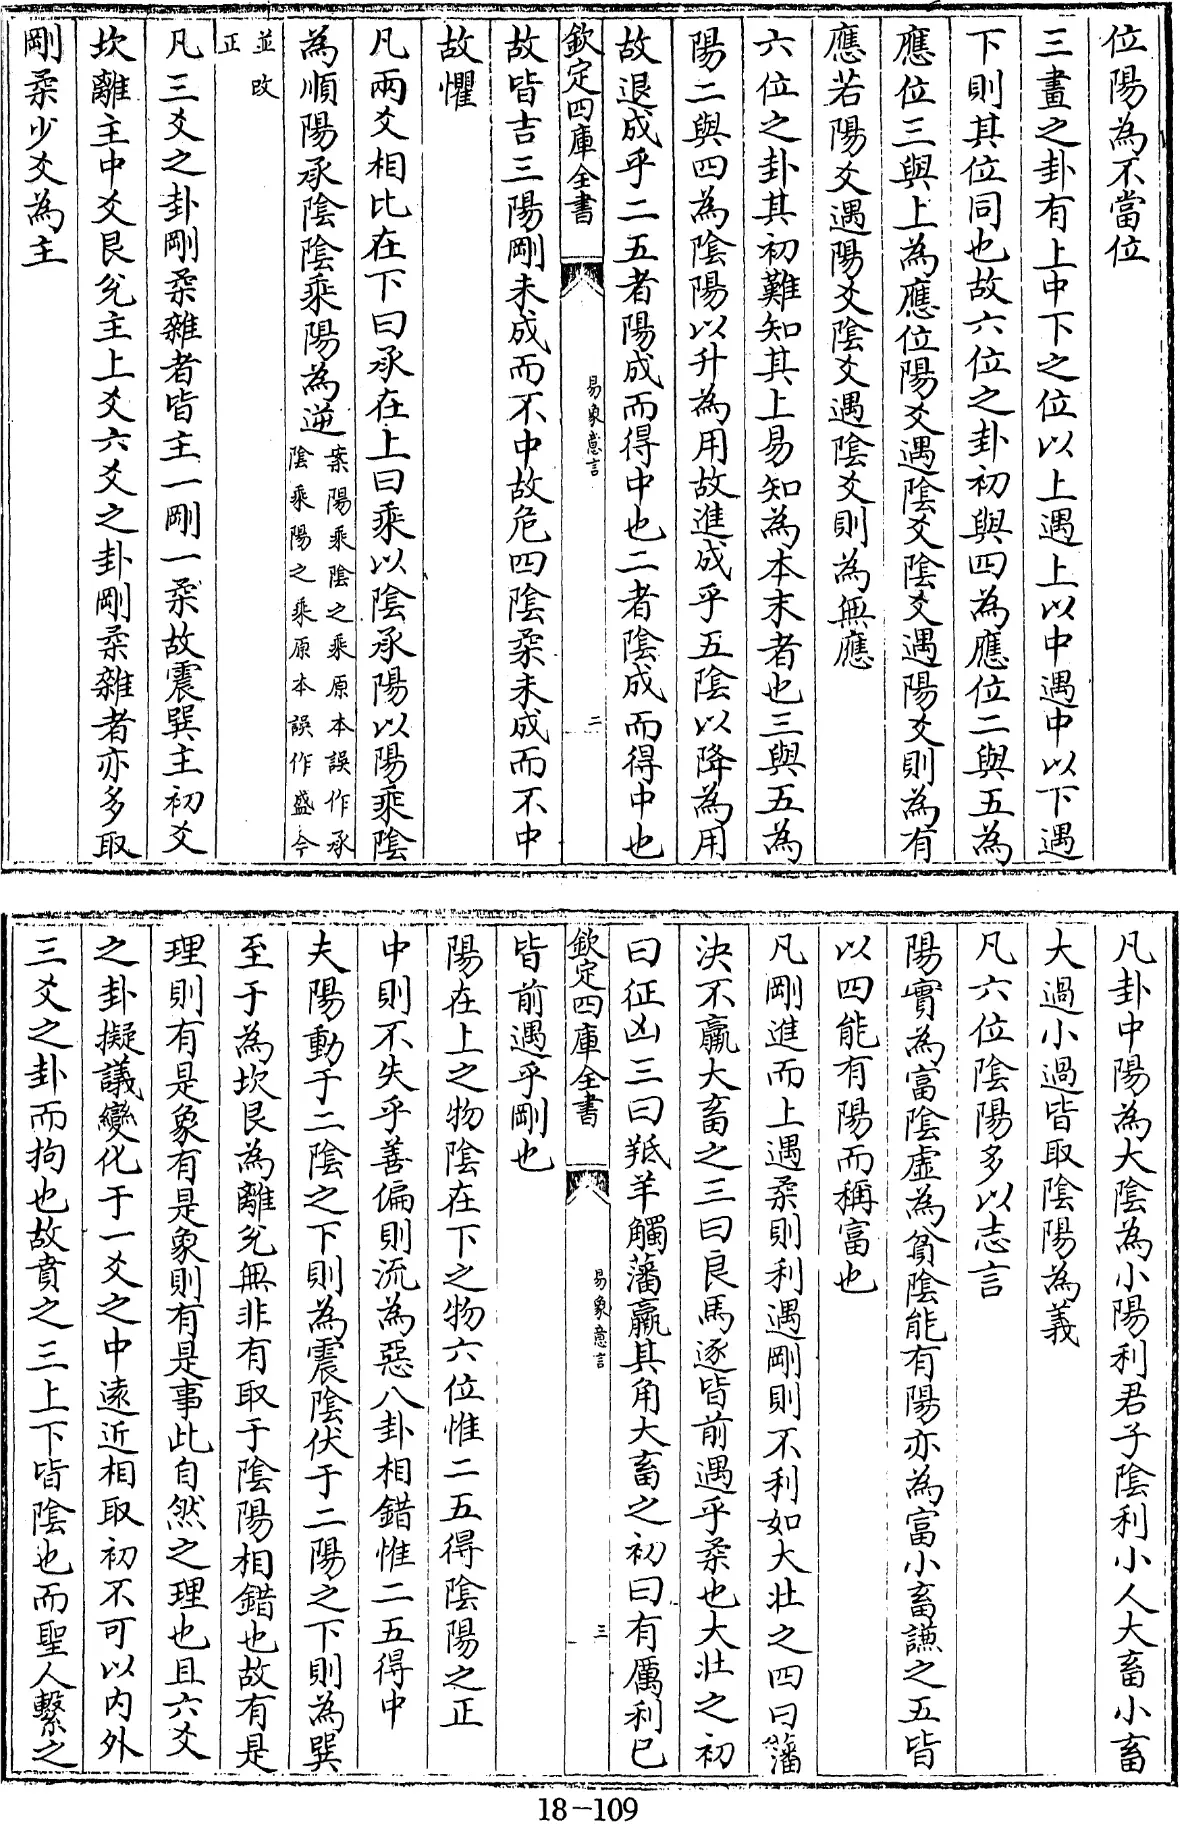 位陽為不當位
三畫之卦有上中下之位以上遇上以中遇中以下遇
下則其位同也故六位之卦初與四為應位二與五為
應位三與上為應位陽爻遇陰爻陰爻遇陽爻則為有
應若陽爻遇陽爻陰爻遇陰爻則為無應
六位之卦其初難知其上易知為本末者也三與五為
陽二與四為陰陽以升為用故進成乎五陰以降為用
故退成乎二五者陽成而得中也二者陰成而得中也
欽定四庫全書
易象意言
二
故皆吉三陽剛未成而不中故危四陰柔未成而不中
故懼
凡兩爻相比在下曰承在上曰乘以陰承陽以陽乘陰
為順陽承陰陰乘陽為逆
案陽乘陰之乘原本誤作承
陰乘陽之乘原本誤作盛今
並改
正
凡三爻之卦剛柔雜者皆主一剛一柔故震巽主初爻
坎離主中爻艮兌主上爻六爻之卦剛柔雜者亦多取
剛柔少爻為主
凡卦中陽為大陰為小陽利君子陰利小人大畜小畜
大過小過皆取陰陽為義
凡六位陰陽多以志言
陽實為富陰虛為貧陰能有陽亦為富小畜謙之五皆
以四能有陽而稱富也
凡剛進而上遇柔則利遇剛則不利如大壯之四曰藩
決不羸大畜之三曰良馬逐皆前遇乎柔也大壯之初
曰征凶三曰羝羊觸藩羸其角大畜之初曰有厲利已
欽定四庫全書
易象意言
三
皆前遇乎剛也
陽在上之物陰在下之物六位惟二五得陰陽之正
中則不失乎善偏則流為惡八卦相錯惟二五得中
夫陽動于二陰之下則為震陰伏于二陽之下則為巽
至于為坎艮為離兌無非有取于陰陽相錯也故有是
理則有是象有是象則有是事此自然之理也且六爻
之卦擬議變化于一爻之中遠近相取初不可以內外
三爻之卦而拘也故賁之三上下皆陰也而聖人繫之
18-109